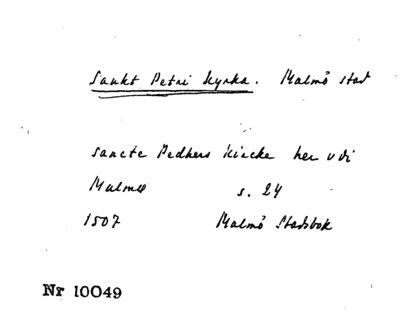 Sankt Petri kyrka. Malmö stad
sancte Pedhers kircke her vdi
Malmø s. 24
1507 Malmö Stadsbok
Nr 10049